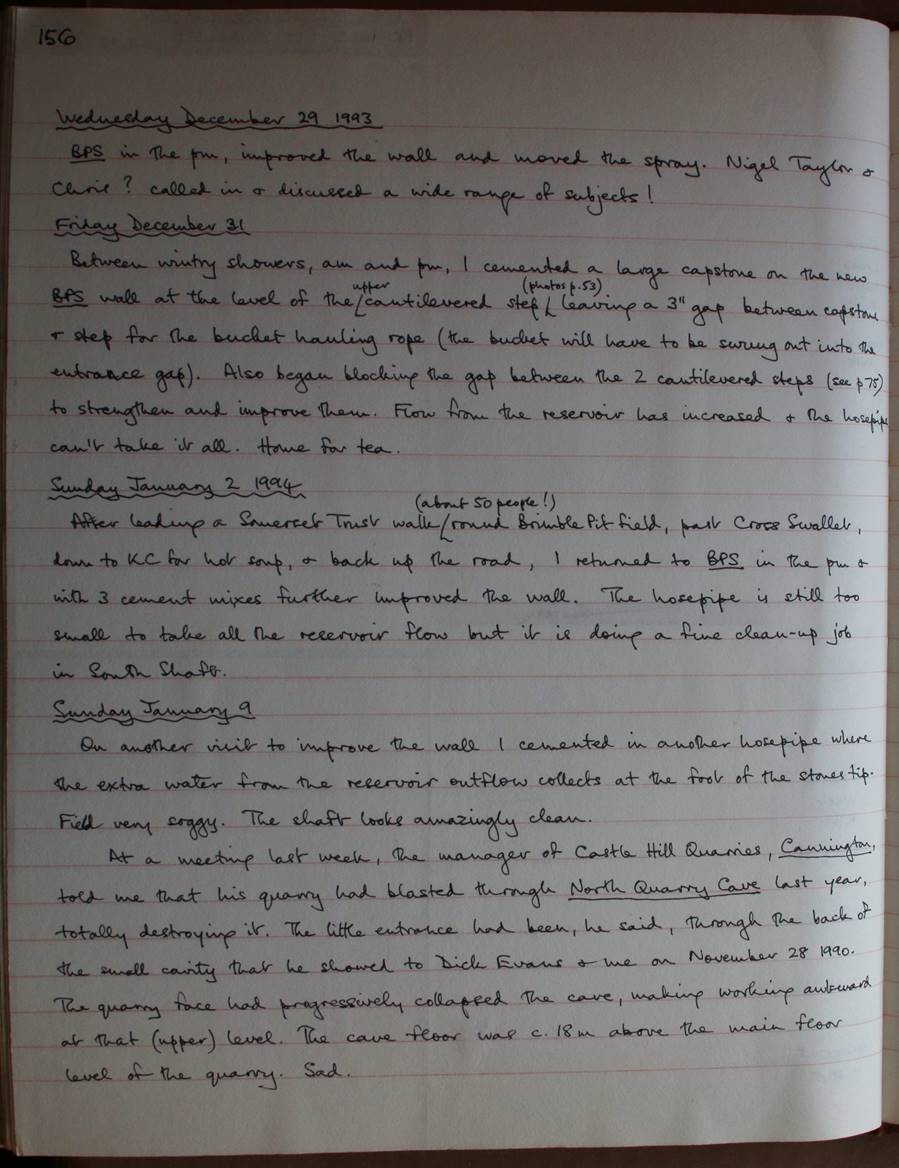 156
Wednesday December 29 1993
BPS in the pm, improved the wall and moved the spray. Nigel Taylor &
Chris? called in & discussed a wide range of subjects!
Friday December 31
Between wintry showers, am and pm, I cemented a large capstone on the new
BPS wall at the level of the upper cantilevered step (photos p.53) leaving a 3" gap between capstone
& step for the bucket hauling rope (the bucket will have to be swung out into the
entrance gap). Also began blocking the gap between the 2 cantilevered steps (see p75)
to strengthen and improve them. Flow from the reservoir has increased & the hosepipe
can't take it all. Home for tea.
Sunday January 2 1994
After leading a Somerset Trust walk (about 50 people!) round Brimble Pit field, past Cross Swallet,
down to KC for hot soup, & back up the road, I returned to BPS in the pm &
with 3 cement mixes further improved the wall. The hosepipe is still too
small to take all the reservoir flow but it is doing a fine clean-up job
in South Shaft.
Sunday January 9
On another visit to improve the wall I cemented in another hosepipe where
the extra water from the reservoir outflow collects at the foot of the stones tip.
Field very soggy. The shaft looks amazingly clean.
At a meeting last week, the manager of Castle Hill Quarries, Cannington,
told me that his quarry had blasted through North Quarry Cave last year,
totally destroying it. The little entrance had been, he said, through the back of
the small cavity that he showed to Dick Evans & me on November 28 1990.
The quarry face had progressively collapsed the cave, making working awkward
at that (upper) level. The cave floor was c. 18m above the main floor
level of the quarry. Sad.